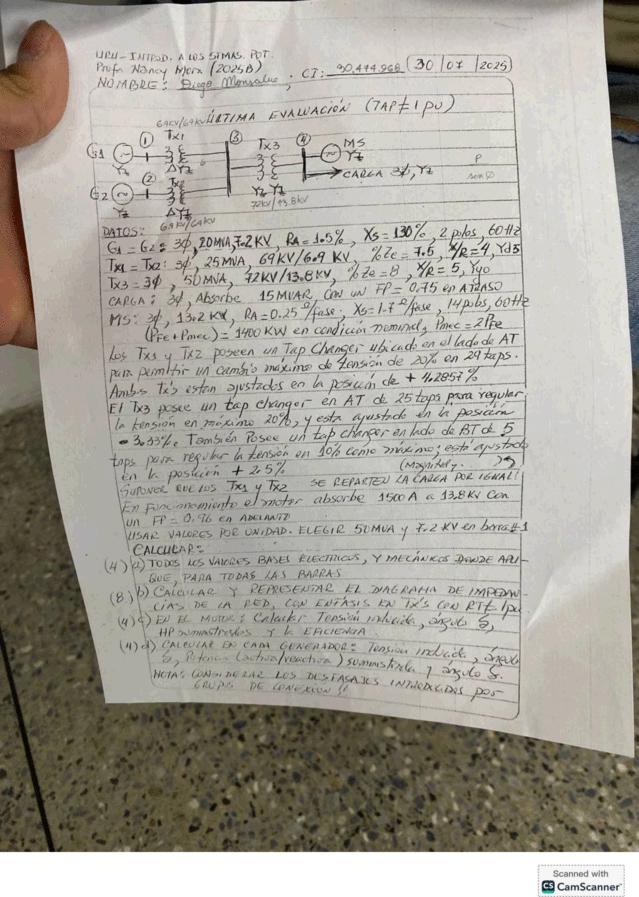 URU-INTROD. A LOS SIMAS. POT.
Profa Nancy Mora (2025B)
NOMBRE: Diego Monsalve. CI: 30,474.968 (30 | 07 | 2025)
ÚLTIMA EVALUACIÓN (TAP ≠ 1 pu)
6.9KV/69KV
① Tx1 ③ Tx3 ④ MS
G1 Y⏚ ΔY⏚ Y⏚
② Tx2 CARGA 3Ø, Y⏚
G2 Y⏚ ΔY⏚ Y⏚ Y⏚
6.9KV/69KV 72KV/13.8KV
P
sen Ø
DATOS:
G1 = G2: 3Ø, 20MVA, 7.2 KV, RA = 1.5%, XS = 130%, 2 polos, 60 Hz
Tx1 = Tx2: 3Ø, 25 MVA, 69 KV/6.9 KV, %Ze = 7.5, X/R = 4, Yd5
Tx3 = 3Ø, 50 MVA, 72KV/13.8KV, %Ze = 8, X/R = 5, Yy0
CARGA: 3Ø, Absorbe 15 MVAR, CON UN FP = 0.75 EN ATRASO
MS: 3Ø, 13.2 KV, RA = 0.25 Ω/fase, XS = 1.7 Ω/fase, 14 polos, 60 Hz
(PFe + Pmec) = 1400 KW en condición nominal, Pmec = 2PFe
Los Tx1 y Tx2 poseen un Tap Changer ubicado en el lado de AT
para permitir un cambio máximo de tensión de 20% en 29 taps.
Ambos Tx's estan ajustados en la posición de + 4.2857%
El Tx3 posee un tap changer en AT de 25 taps para regular
la tensión en máximo 20%, y esta ajustado en la posición
- 3.33%. También Posee un tap changer en lado de BT de 5
taps para regular la tensión en 10% como máximo; está ajustado
en la posición + 2.5%
SUPONER QUE LOS Tx1 y Tx2 SE REPARTEN LA CARGA POR IGUAL!
En funcionamiento el motor absorbe 1500 A a 13.8 KV con
un FP = 0.96 en ADELANTO
USAR VALORES POR UNIDAD. ELEGIR 50 MVA y 7.2 KV en barra #1
CALCULAR:
(4) a) TODOS LOS VALORES BASES ELECTRICOS, Y MECÁNICOS DONDE APLI-
QUE, PARA TODAS LAS BARRAS
(8) b) CALCULAR Y REPRESENTAR EL DIAGRAMA DE IMPEDAN
CIAS DE LA RED, CON ENFASIS EN Tx's CON RT ≠ 1pu
(4) c) EN EL MOTOR: Calcular Tensión inducida, ángulo δ,
HP suministrados y la EFICIENCIA
(4) d) CALCULAR EN CADA GENERADOR: Tensión inducida, ángulo
δ, Potencia (activa/reactiva) suministrada y ángulo δ.
NOTA: CONSIDERAR LOS DESFASAJES INTRODUCIDOS POR
GRUPOS DE CONEXION!!
Scanned with
CS CamScanner